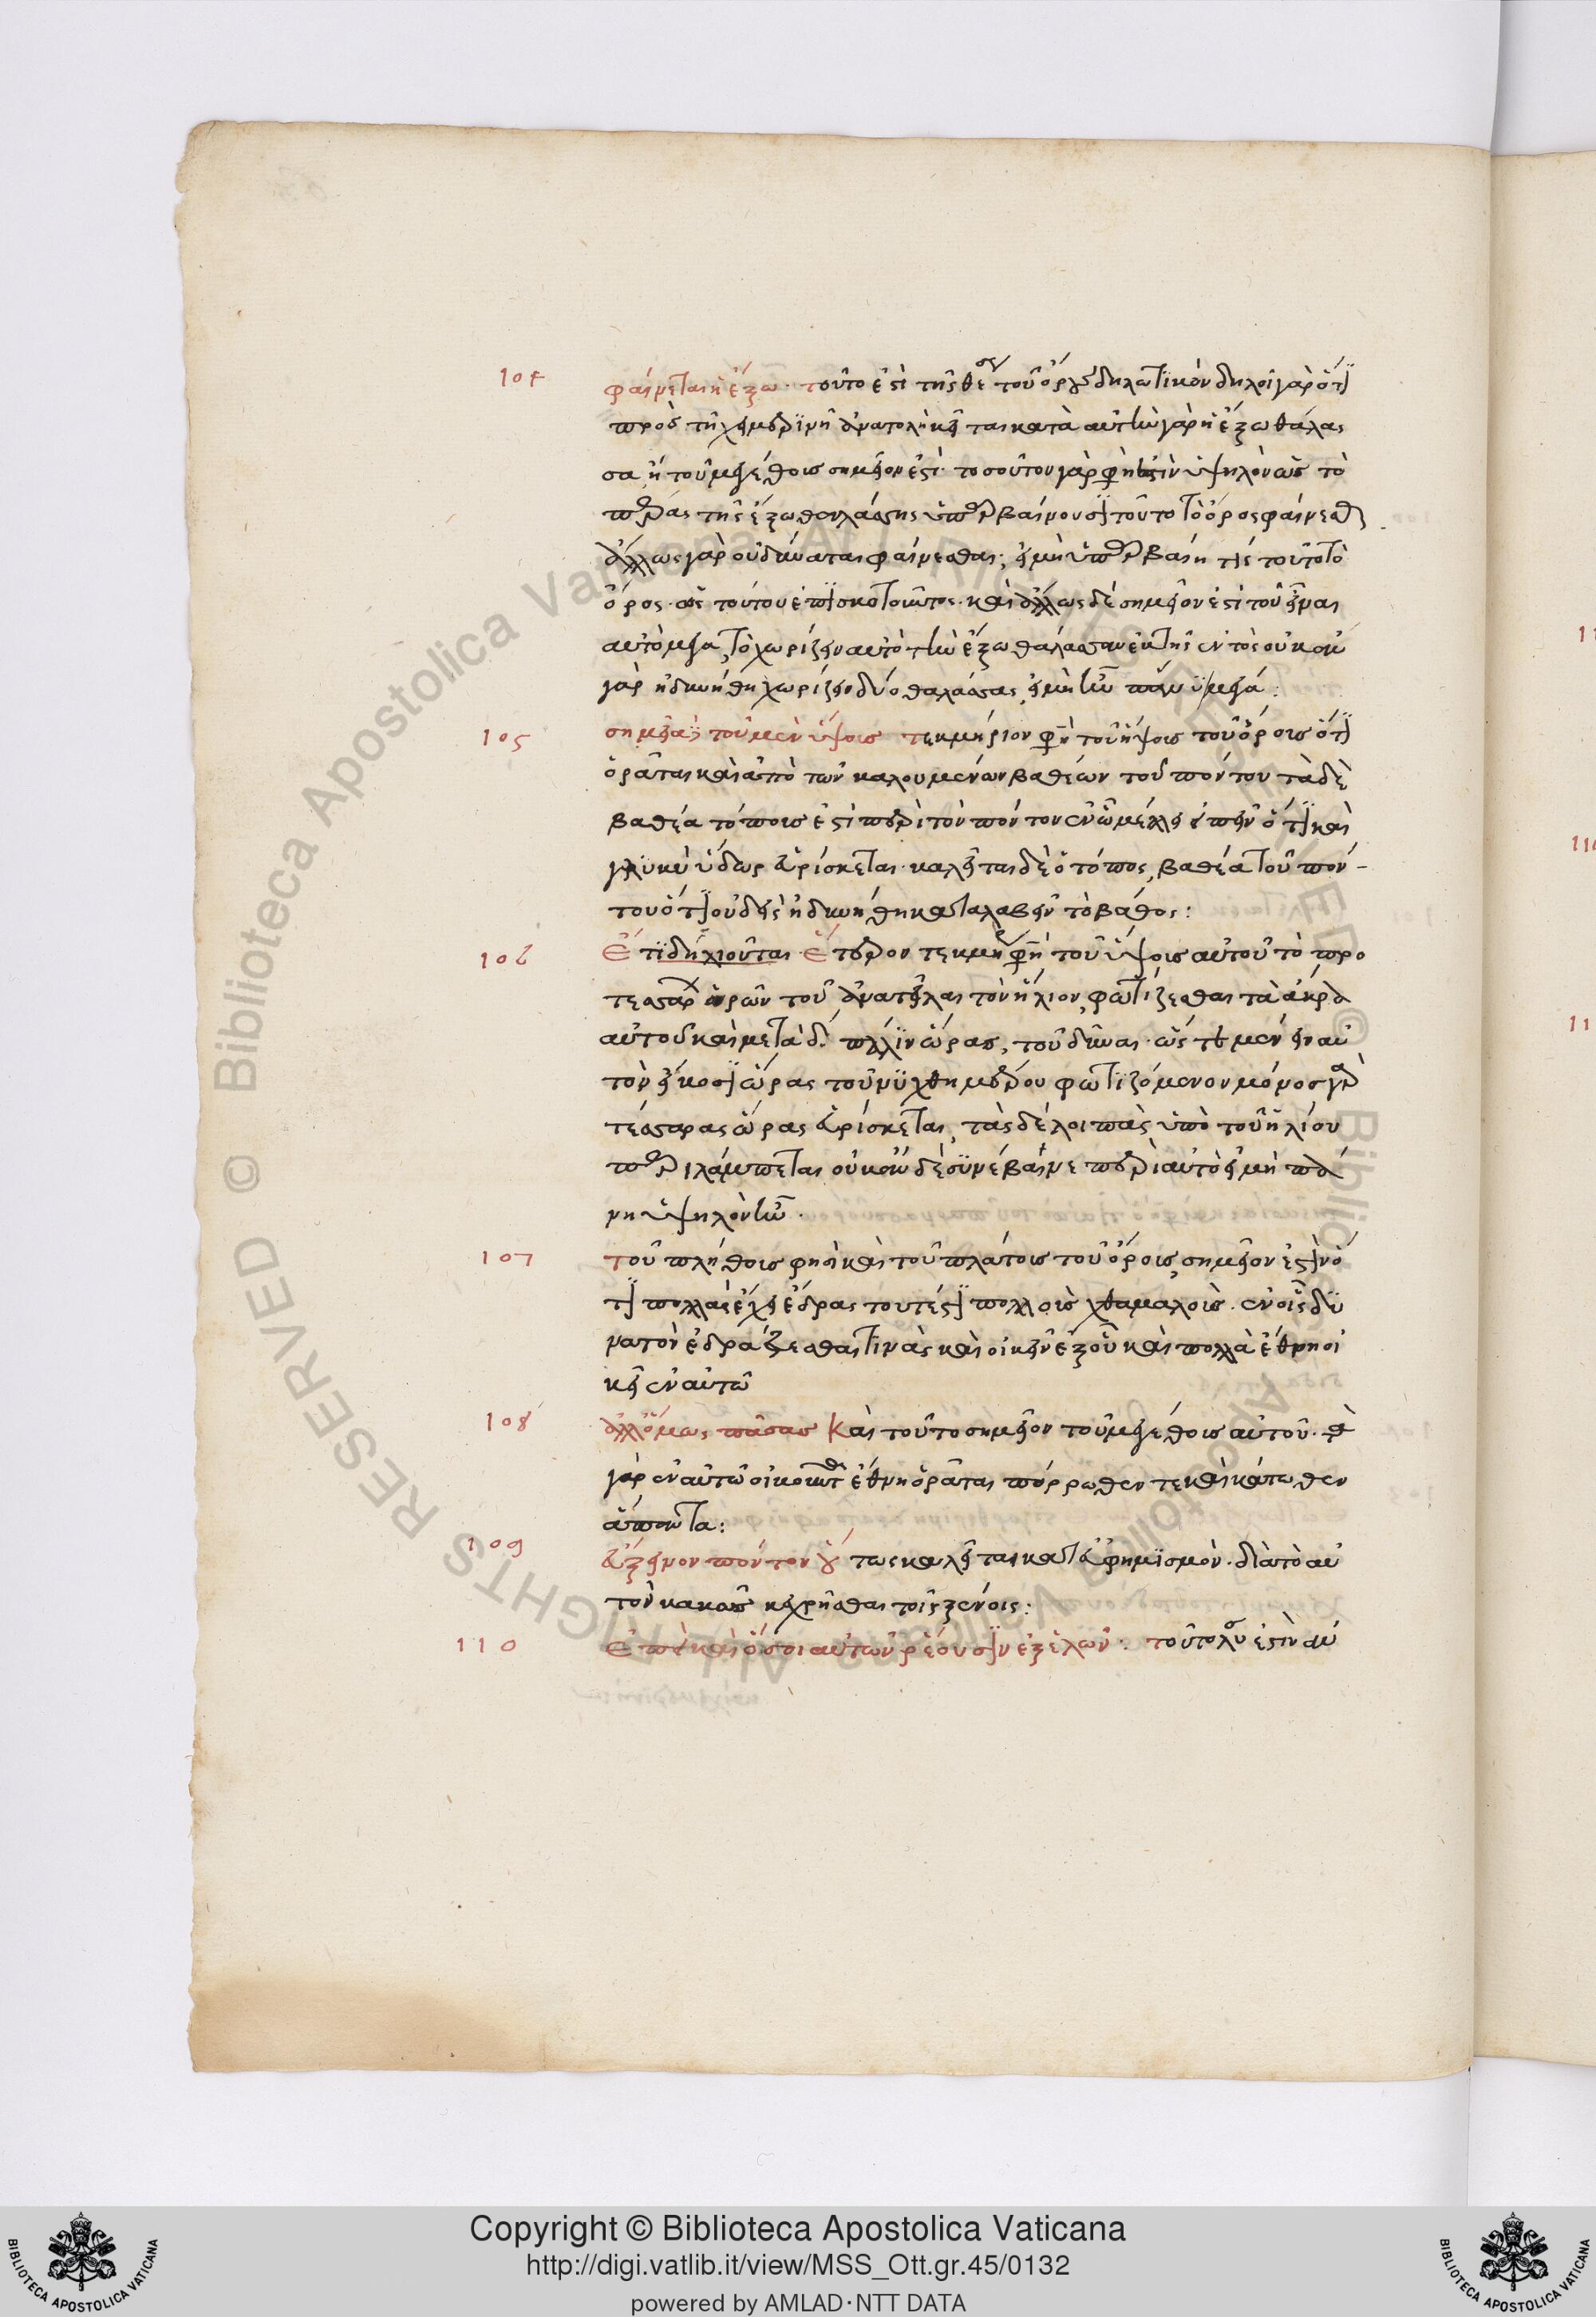 104 φαίνεται ἡ ἔξω· τοῦτο ἐστὶ τῆς θέσ τοῦ ὄρους δηλωτικὸν δηλοῖ γὰρ ὅτι
πρὸς τῆ χειμερινῆ ἀνατολῆ κεῖται κατὰ αὐτὴν γὰρ ἡ ἔξω θάλασ
σα, ἢ τοῦ μεγέθους σημεῖον ἐστί· τοσοῦτον γὰρ φη ἐστὶν ὑψηλὸν ὡς τὸ
πέρας τῆς ἔξω θαλάσσης ὑπερβαίνουσι τοῦτο τὸ ὄρος φαίνεσθ
ἄλλως γὰρ οὐ δύναται φαίνεσθαι, εἰ μὴ ὑπερβαίη τις τοῦτο τὸ
ὄρος· ὡς τούτου ἐπισκοτοῦντος· καὶ ἄλλως δὲ σημεῖον ἐστὶ τοῦ εἶναι
αὐτὸ μέγα, τὸ χωρίζειν αὐτὸ τὴν ἔξω θάλασσαν ἐκ τῆς ἐντὸς οὐκ ἂν
γὰρ ἠδυνήθη χωρίζειν δύο θαλάσσας, εἰ μὴ ἦν πάνυ μέγα:
105 σημεῖα τοῦ μὲν ὕψους τεκμήριον φη τοῦ ὕψους τοῦ ὄρους ὅτι
ὁρᾶται καὶ ἀπὸ τῶν καλουμένων βαθέων τοῦ πόντου τὰ δὲ
βαθέα τόπους ἐστὶ περὶ τὸν πόντον ἐν ὧ μέλλει εἰπεῖν ὅτι καὶ
γλυκὺ ὕδωρ εὑρίσκεται· καλεῖται δὲ ὁ τόπος, βαθέα τοῦ πόν-
του ὅτι οὐδεὶς ἠδυνήθη καταλαβεῖν τὸ βάθος:
106 Ἔτι δὴ χιοῦται Ἕτερον τεκμή φη τοῦ ὕψους αὐτοῦ τὸ προ
τεσσάρ ὡρῶν τοῦ ἀνατεῖλαι τὸν ἥλιον, φωτίζεσθαι τὰ ἄκρα
αὐτοῦ καὶ μετὰ δ. πάλιν ὥρας, τοῦ δῦναι· ὥστε μὲν εἶναι αὐ
τὸν εἴκοσι ὥρας τοῦ νυχθημέρου φωτιζόμενον μόνος γὰρ
τέσσαρας ὥρας εὑρίσκεται, τὰς δὲ λοιπὰς ὑπὸ τοῦ ἡλίου
περιλάμπεται οὐκ ἂν δὲ συνέβαινε περὶ αὐτὸ εἰ μὴ πά
νη ὑψηλὸν ἦν.
107 τοῦ πλήθους φησὶ καὶ τοῦ πλάτους τοῦ ὄρους, σημεῖον ἐστὶν ὅ
τι πολλὰς ἔχει ἕδρας τουτέστι πολλοὺς χθαμαλοὺς. ἐν οἷς δυ
νατὸν ἑδράζεσθαι τινὰς καὶ οἰκεῖν ἐξ οὗ καὶ πολλὰ ἔθνη οἰ
κεῖ ἐν αὐτῶ
108 ἀλλ' ὅμως πάσας Καὶ τοῦτο σημεῖον τοῦ μεγέθους αὐτοῦ. τὰ
γὰρ ἐν αὐτῶ οἰκοῦντ ἔθνη ὁρᾶται πόρρωθεν τε καὶ κάτωθεν
ἀπόντα:
109 εὔξεινον πόντον οὕτως καλεῖται κατ εὐφημισμὸν. διὰ τὸ αὐ
τὸν κακῶς κεχρῆσθαι τοῖς ξένοις:
110 Ἐπεὶ καὶ ὅσποι αὐτῶν ῥέουσιν ἐξελῶν: τοῦτο λύ ἐστὶν αὐ
Copyright © Biblioteca Apostolica Vaticana
http://digi.vatlib.it/view/MSS_Ott.gr.45/0132
powered by AMLAD·NTT DATA